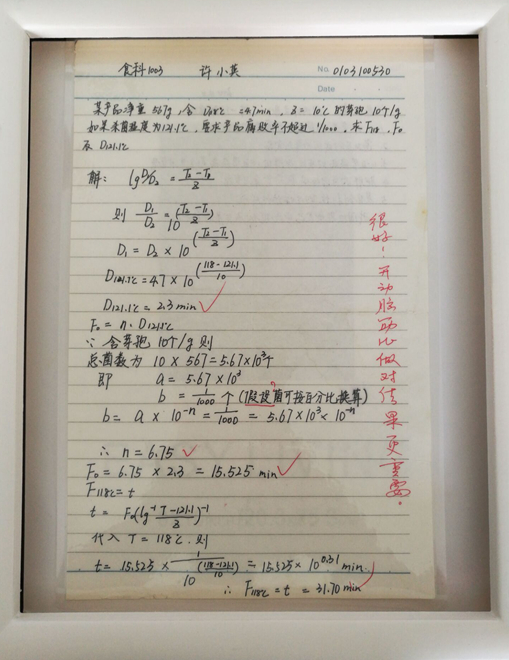 食科1003 许小英 No. 0103100530
Date
某产品净重567g,含D118℃=4.7min,Z=10℃的芽孢10个/g
如果杀菌温度为121.1℃,要求产品腐败率不超过1/1000,求F118,F0
及D121.1℃
解: lgD1/D2 = (T2-T1)/Z
则 D1/D2 = 10^((T2-T1)/Z)
D1 = D2 × 10^((T2-T1)/Z)
D121.1℃ = 4.7 × 10^((118-121.1)/10)
D121.1℃ = 2.3 min
F0 = n·D121.1℃
∵ 含芽孢10个/g 则
总菌数为 10 × 567 = 5.67×10³个
即 a = 5.67 × 10³
b = 1/1000 个 (假设菌可按百分比换算)
b = a × 10^-n = 1/1000 = 5.67×10³ × 10^-n
∴ n = 6.75
F0 = 6.75 × 2.3 = 15.525 min
F118℃ = t
t = F0(lg^-1 (T-121.1)/Z)^-1
代入 T = 118℃ 则
t = 15.525 × 1/10^((118-121.1)/10) = 15.525 × 10^0.31 min
∴ F118℃ = t = 31.70 min
很好!开动脑筋比做对结果更重要.